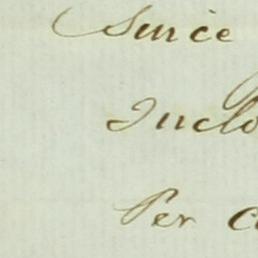 Since
Inclo
Per c